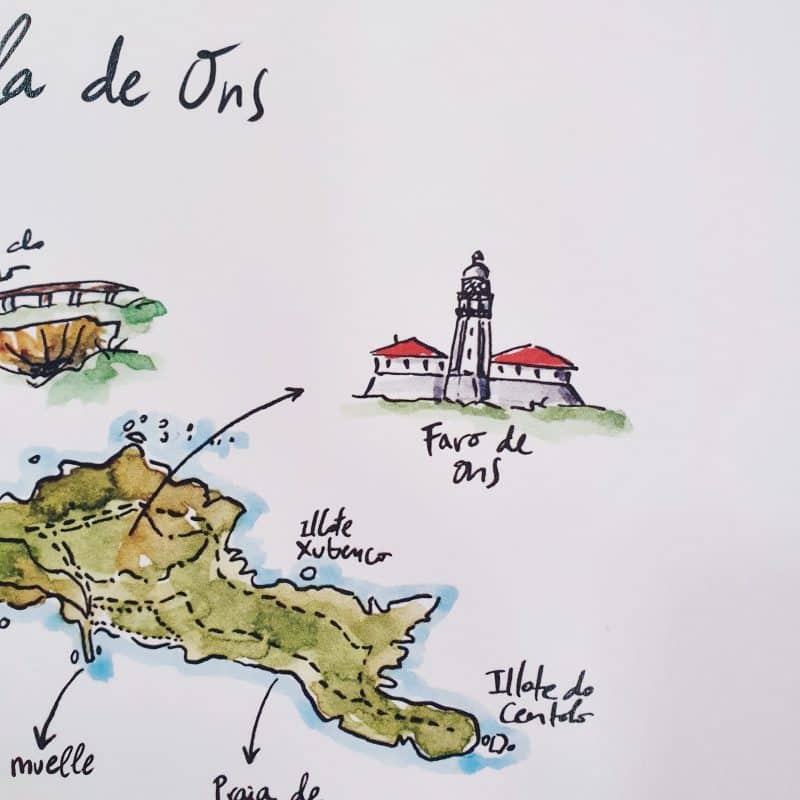 la de Ons
do
Faro de
Ons
Illote
Xubenco
Illote do
Centolo
muelle
Praia de